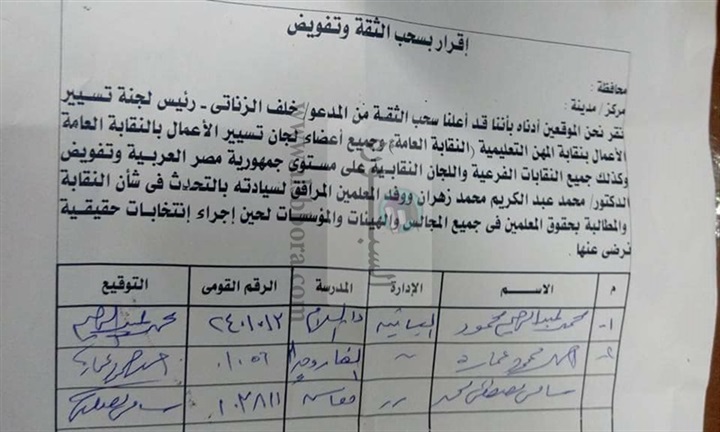 إقرار بسحب الثقة وتفويض
محافظة :
مركز/ مدينة :
نقر نحن الموقعين أدناه بأننا قد أعلنا سحب الثقة من المدعو/ خلف الزناتى - رئيس لجنة تسيير
الأعمال بنقابة المهن التعليمية (النقابة العامة) وجميع أعضاء لجان تسيير الأعمال بالنقابة العامة
وكذلك جميع النقابات الفرعية واللجان النقابية على مستوى جمهورية مصر العربية وتفويض
الدكتور/ محمد عبد الكريم محمد زهران ووفد المعلمين المرافق لسيادته بالتحدث فى شأن النقابة
والمطالبة بحقوق المعلمين فى جميع المجالس والهيئات والمؤسسات لحين إجراء إنتخابات حقيقية
نرضى عنها .
م الاسم الإدارة المدرسة الرقم القومى التوقيع
١- محمد عبدالرحيم محمود دار السلام ٢٤٠١٠١٢
٢- احمد محمود عمارة ٠١٠٥٦
سامى مصطفى ٠١٠٣٨١١